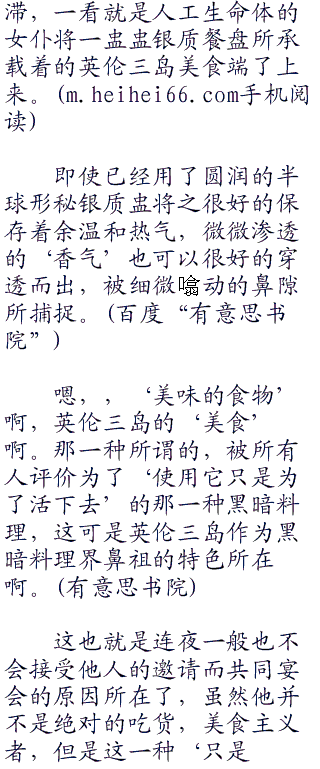 滞，一看就是人工生命体的
女仆将一盅盅银质餐盘所承
载着的英伦三岛美食端了上
来。(m.heihei66.com手机阅
读)
即使已经用了圆润的半
球形秘银质盅将之很好的保
存着余温和热气，微微渗透
的‘香气’也可以很好的穿
透而出，被细微噏动的鼻隙
所捕捉。(百度“有意思书
院”)
嗯，，‘美味的食物’
啊，英伦三岛的‘美食’
啊。那一种所谓的，被所有
人评价为了‘使用它只是为
了活下去’的那一种黑暗料
理，这可是英伦三岛作为黑
暗料理界鼻祖的特色所在
啊。(有意思书院)
这也就是连夜一般也不
会接受他人的邀请而共同宴
会的原因所在了，虽然他并
不是绝对的吃货，美食主义
者，但是这一种‘只是